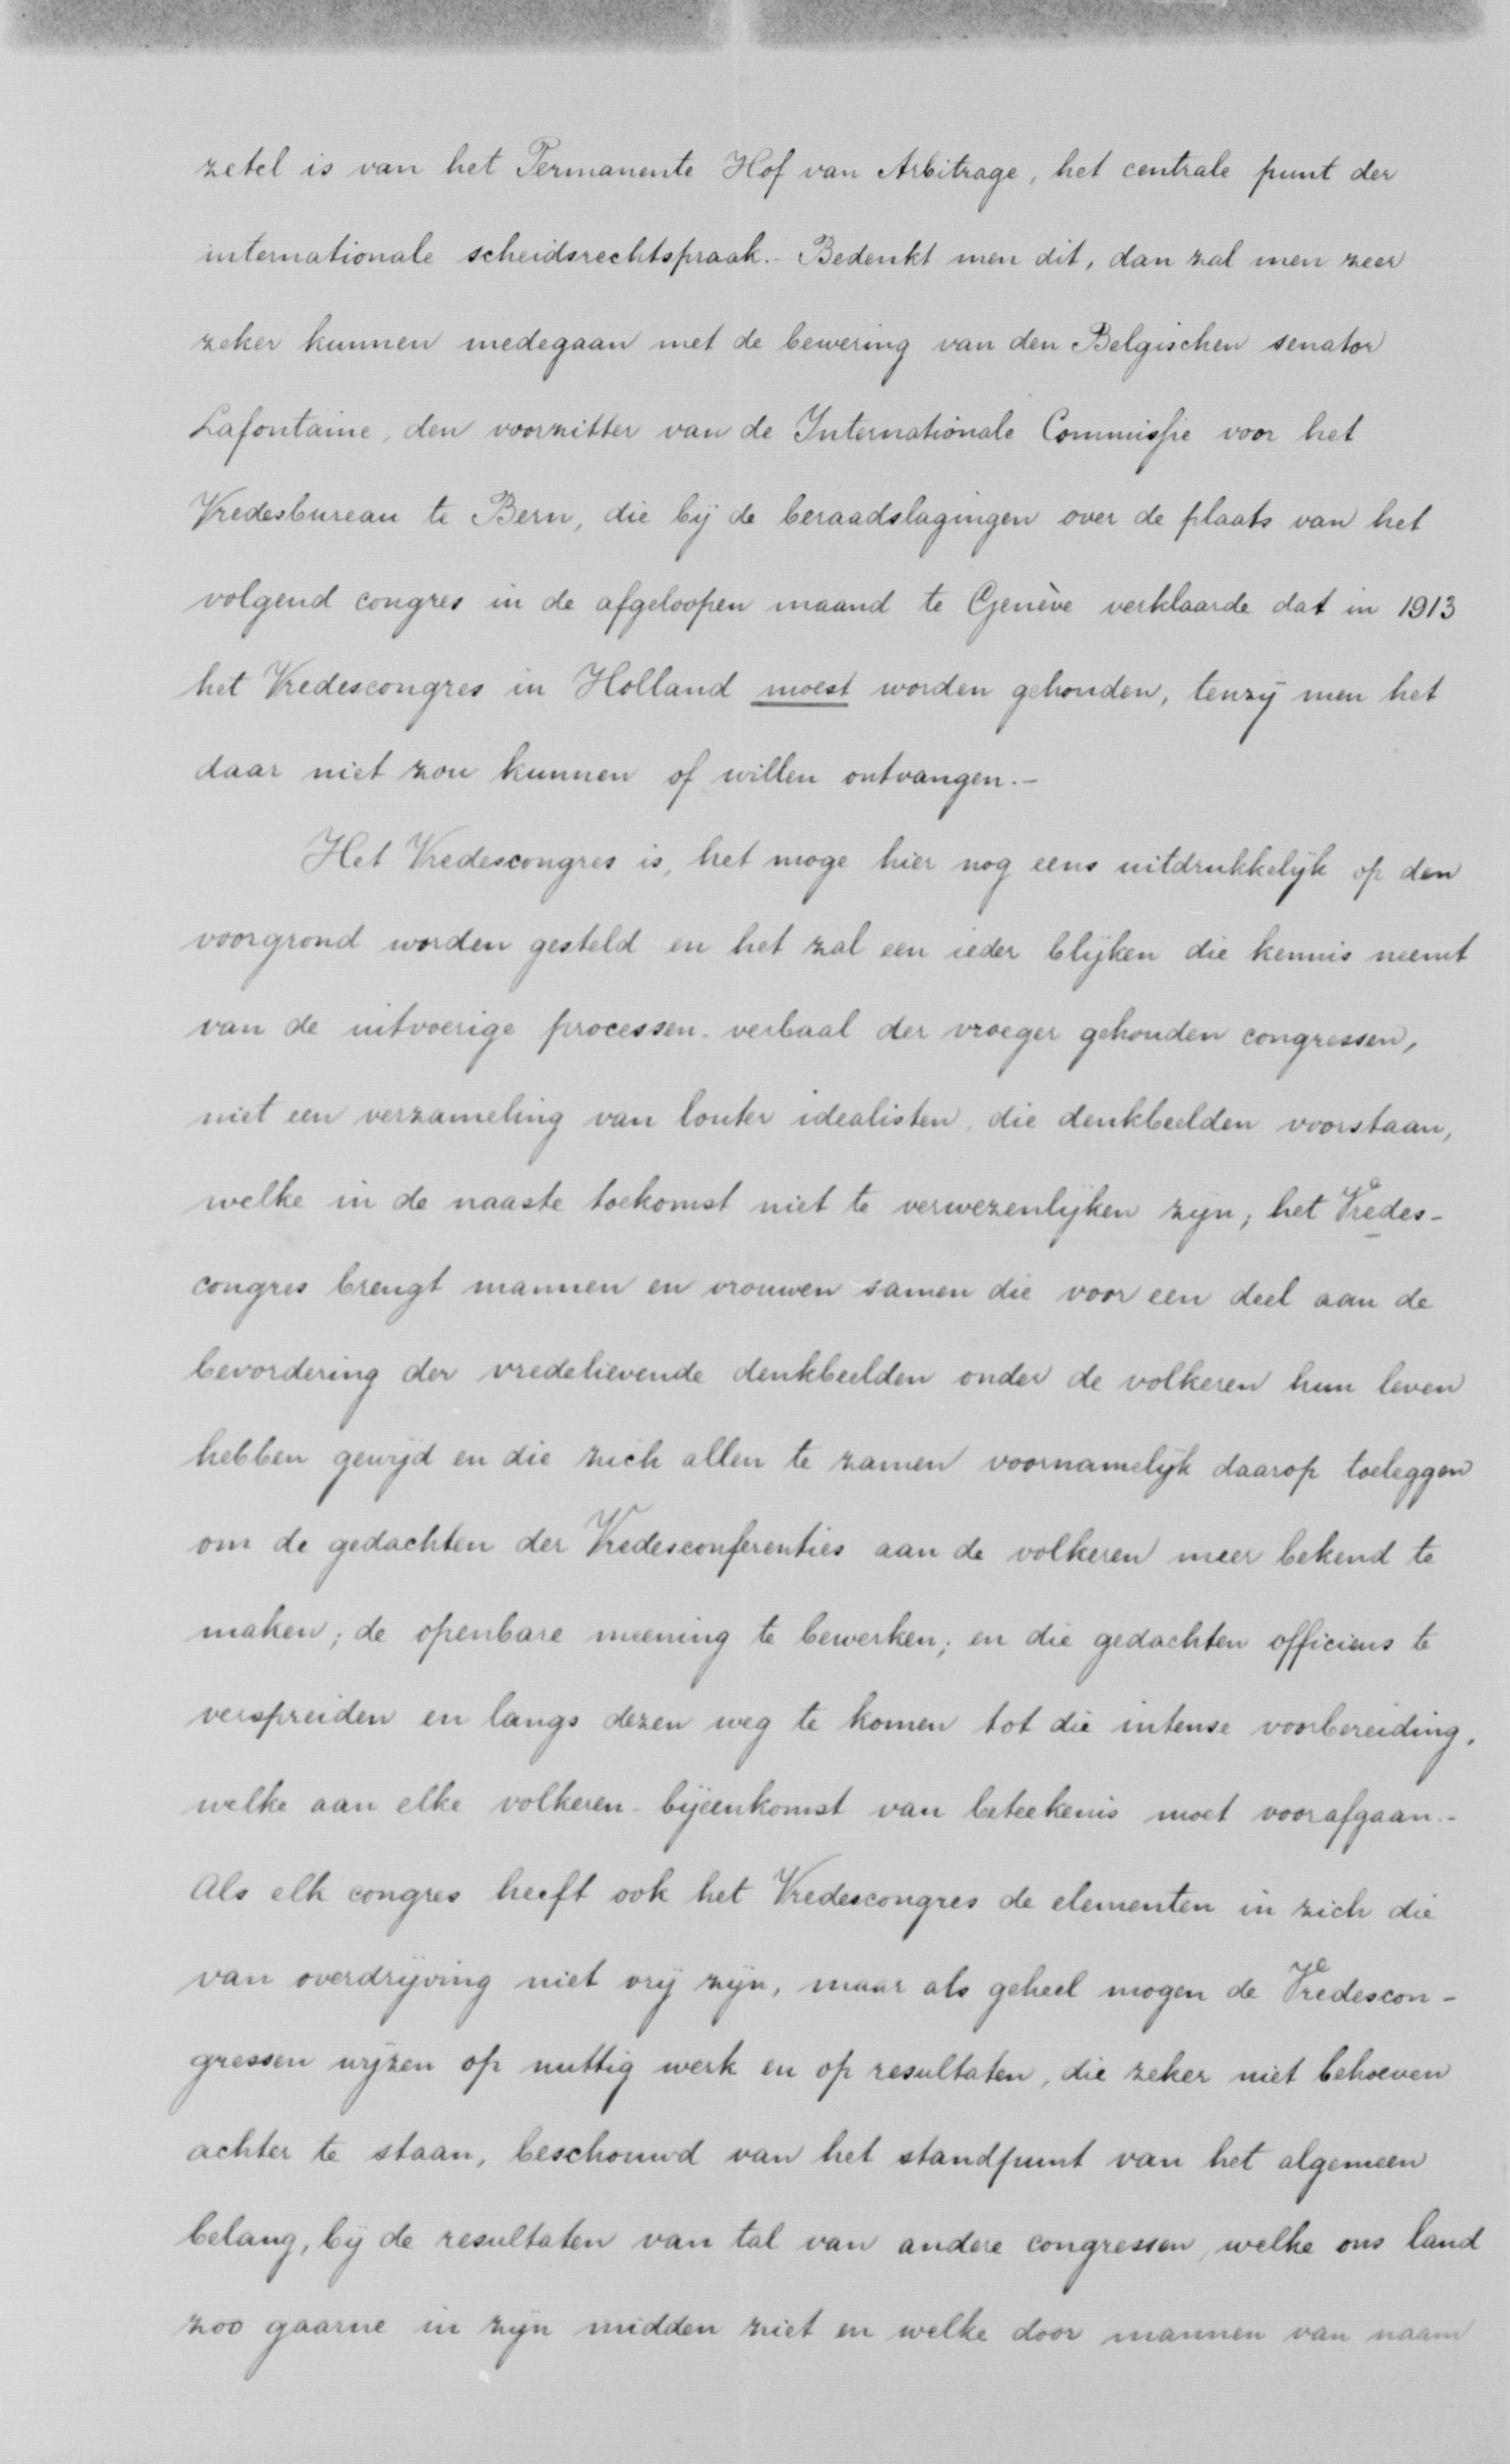 zetel is van het Permanente Hof van Arbitrage, het centrale punt der
internationale scheidsrechtspraak.- Bedenkt men dit, dan zal men zeer
zeker kunnen medegaan met de bewering van den Belgischen senator
Lafontaine, den voorzitter van de Internationale Commissie voor het
Vredesbureau te Bern, die bij de beraadslagingen over de plaats van het
volgend congres in de afgeloopen maand te Genève verklaarde dat in 1913
het Vredescongres in Holland moest worden gehouden, tenzij men het
daar niet zou kunnen of willen ontvangen.-
Het Vredescongres is, het moge hier nog eens uitdrukkelijk op den
voorgrond worden gesteld en het zal een ieder blijken die kennis neemt
van de uitvoerige processen-verbaal der vroeger gehouden congressen,
niet een verzameling van louter idealisten, die denkbeelden voorstaan,
welke in de naaste toekomst niet te verwezenlijken zijn; het Vredes-
congres brengt mannen en vrouwen samen die voor een deel aan de
bevordering der vredelievende denkbeelden onder de volkeren hun leven
hebben gewijd en die zich allen te zamen voornamelijk daarop toeleggen
om de gedachten der Vredesconferenties aan de volkeren meer bekend te
maken; de openbare meening te bewerken; en die gedachten officieus te
verspreiden en langs dezen weg te komen tot die intense voorbereiding,
welke aan elke volkeren-bijeenkomst van beteekenis moet voorafgaan.-
Als elk congres heeft ook het Vredescongres de elementen in zich die
van overdrijving niet vrij zijn, maar als geheel mogen de Vredescon-
gressen wijzen op nuttig werk en op resultaten, die zeker niet behoeven
achter te staan, beschouwd van het standpunt van het algemeen
belang, bij de resultaten van tal van andere congressen, welke ons land
zoo gaarne in zijn midden ziet en welke door mannen van naam